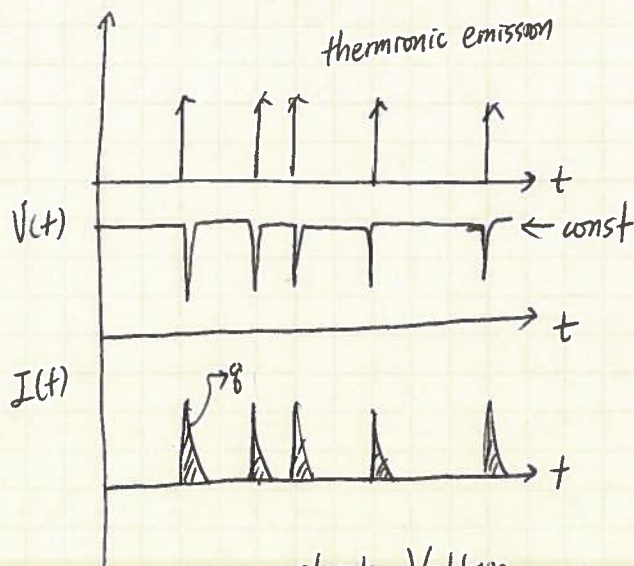 thermionic emission
t
V(t)
← const
t
I(t)
q
t